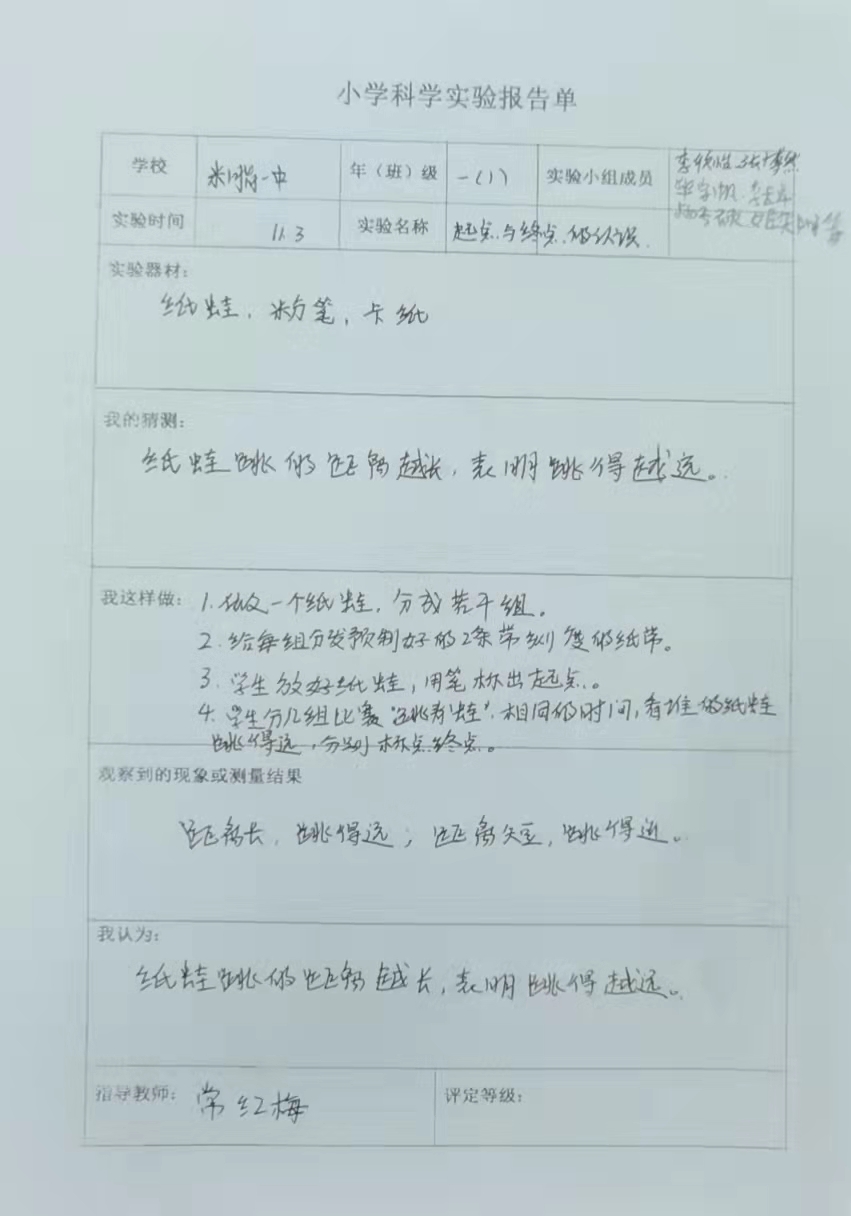 小学科学实验报告单
学校 米脂一中 年（班）级 一（1） 实验小组成员
实验时间 11.3 实验名称 起点与终点的认识.
实验器材：
纸蛙，粉笔，卡纸
我的猜测：
纸蛙跳的距离越长，表明跳得越远。
我这样做：1.做一个纸蛙，分成若干组。
2.给每组分发预制好的2条带刻度的纸带。
3.学生放好纸蛙，用笔标出起点。
4.学生分几组比赛“跳青蛙”.相同的时间，看谁的纸蛙
跳得远，分别标点终点。
观察到的现象或测量结果
距离长，跳得远；距离短，跳得近。
我认为：
纸蛙跳的距离越长，表明跳得越远。
指导教师： 常红梅 评定等级：